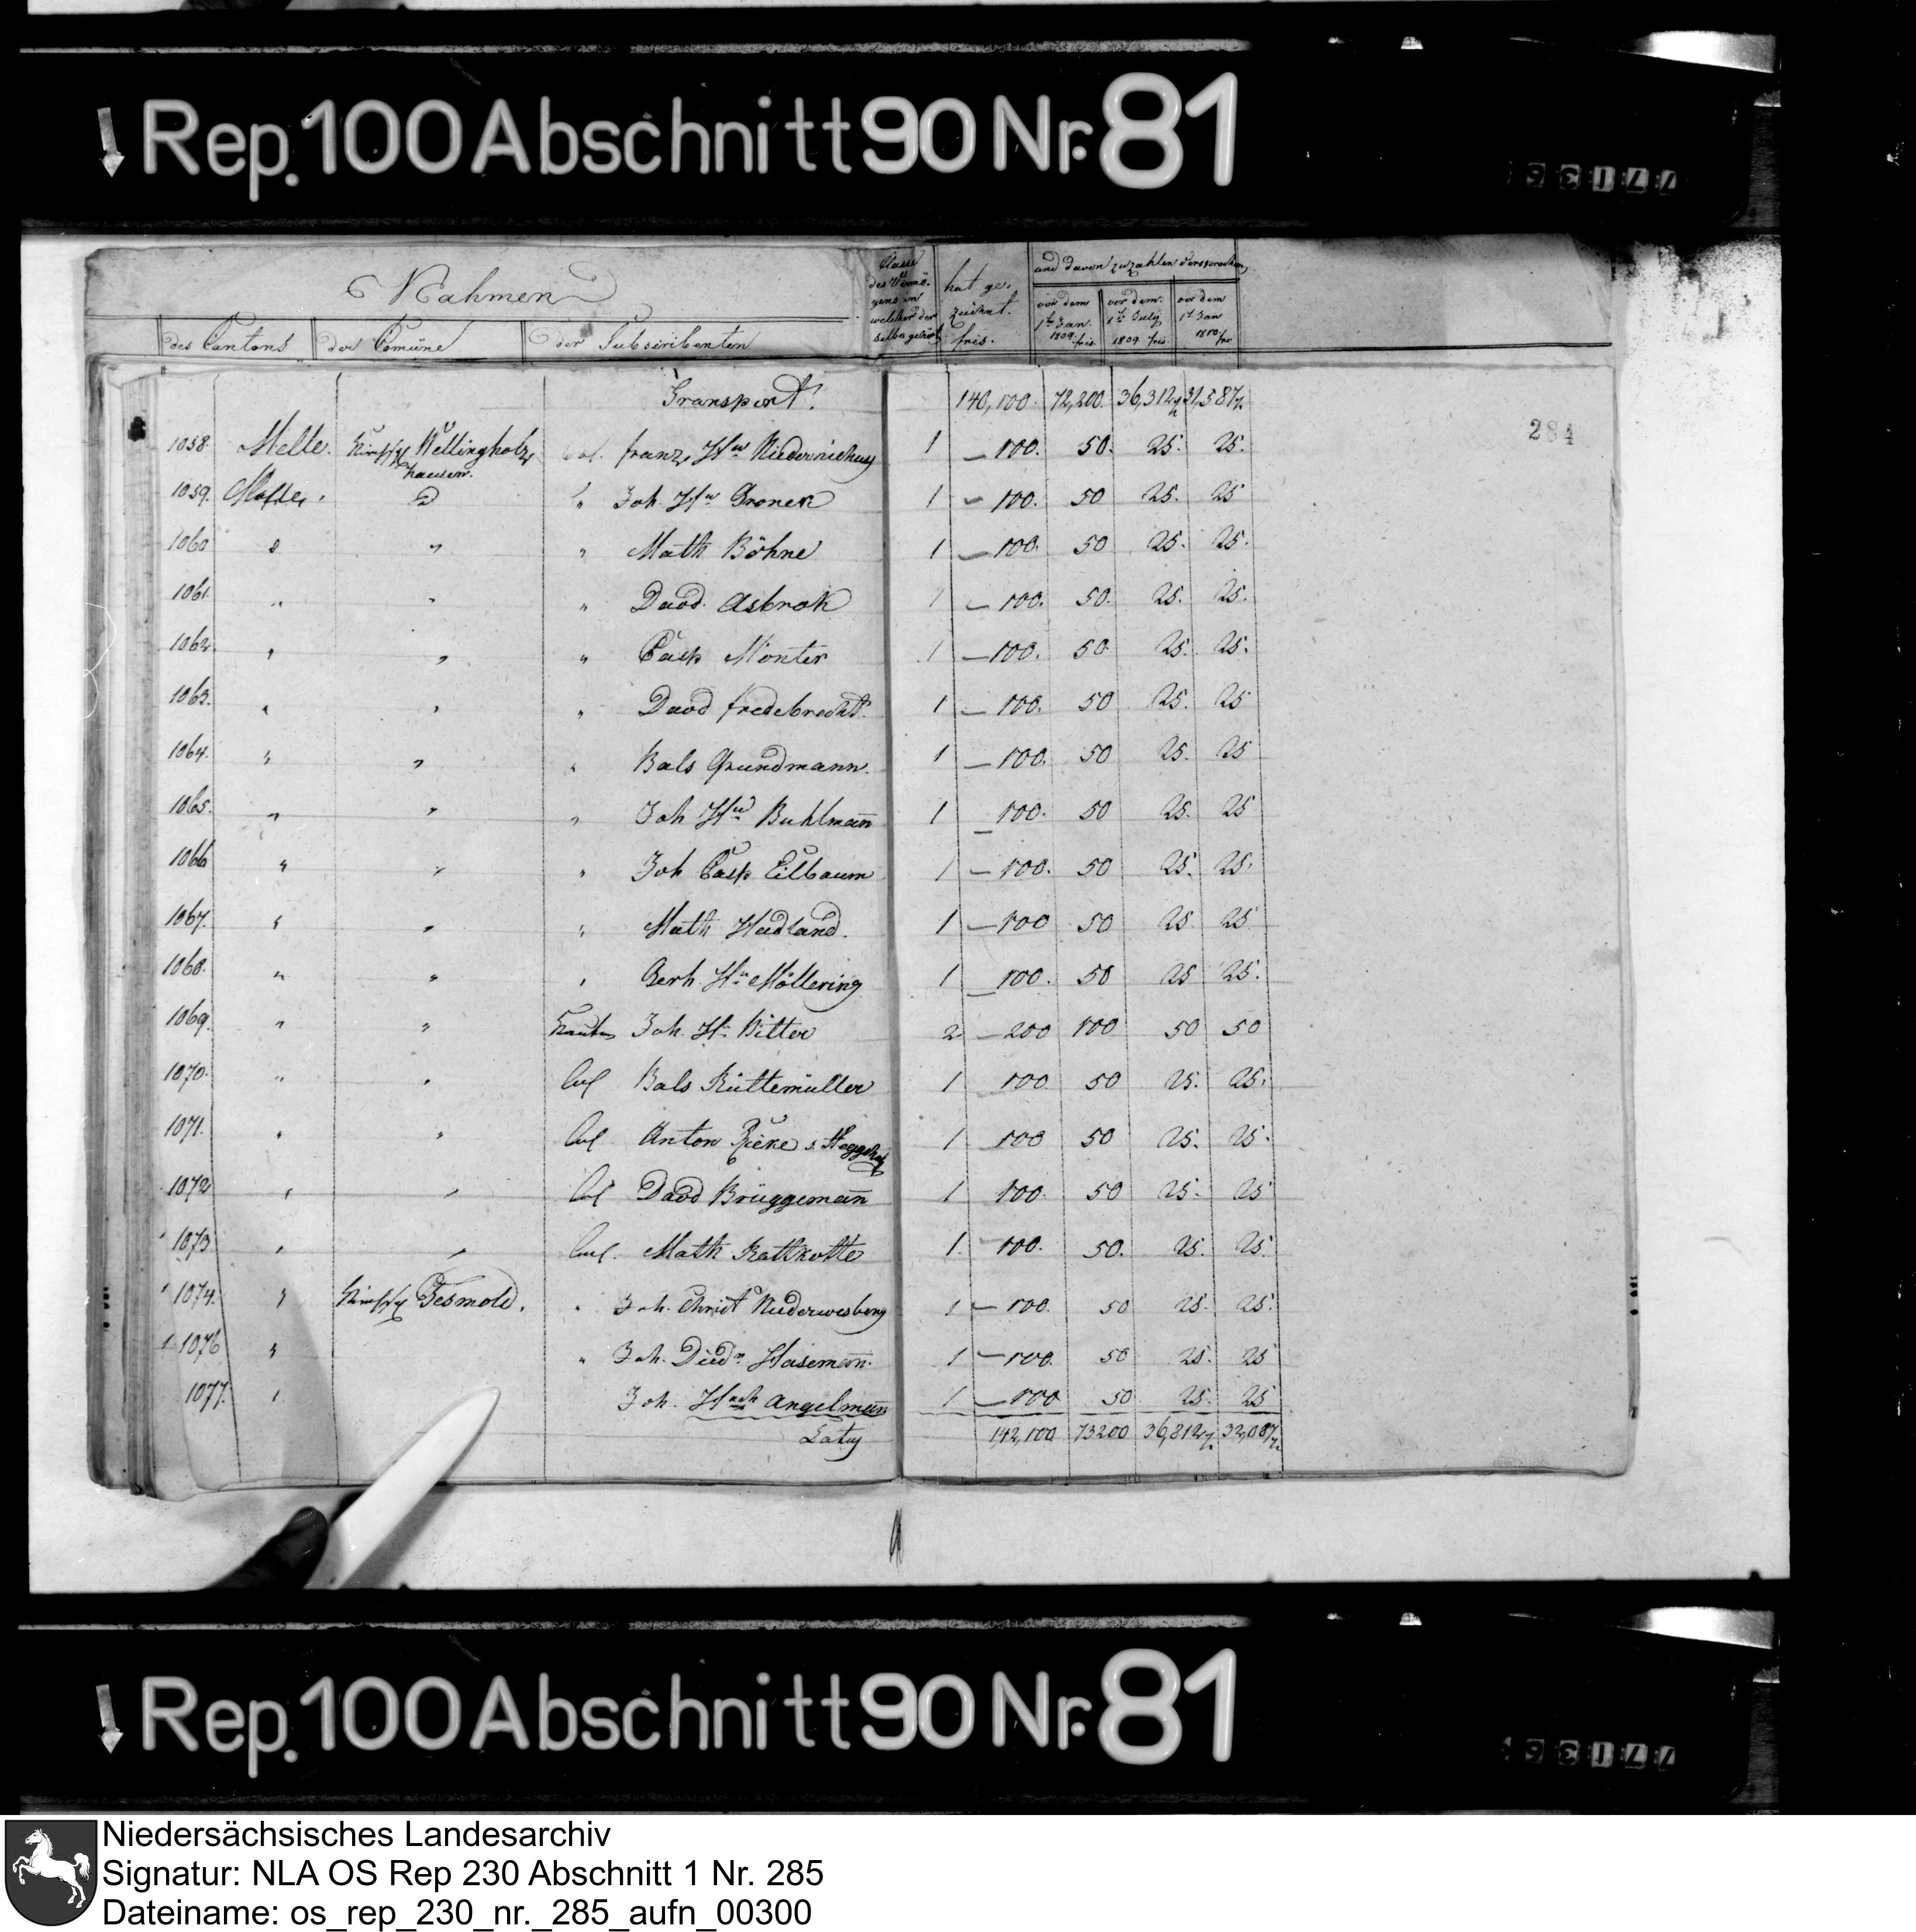 Rep. 100 Abschnitt 90 Nr. 81
Nahmen
des Cantons der Comüne der Subscribenten
Classe des Vermögens in welcher der selbe gehört
hat gezeichnet. frcs.
und davon zu zahlen versprochen
vor dem 1ten Jan. 1809 frcs.
vor dem 1ten July 1809 frcs
vor dem 1t Jan 1810 frc
Transport. 140,100. 72,200. 36,312½ 31,587½
284
1058. Melle. Kirchsp Wellingholzhausen. Col. franz Hr Niederniehus 1 100. 50. 25. 25.
1059. Melle. D " Joh. Hr Gronek 1 100. 50 25. 25
1060 " " " Math Böhne 1 100. 50 25. 25.
1061. " " " David Asbrok 1 100. 50. 25. 25.
1062. " " " Casp Monter 1 100. 50 25. 25.
1063. " " " David fredebrecht. 1 100. 50 25. 25
1064. " " " Bals Grundmann. 1 100. 50 25. 25
1065. " " " Joh Hr Buhlman̄ 1 100. 50 25. 25
1066 " " " Joh Casp Eilbaum 1 100. 50 25. 25.
1067. " " " Math Hadland. 1 100 50 25 25
1068. " " " Gerh. Hr Möllering 1 100. 50 25 25.
1069. " " Joh. Hr Bitter 2 200 100 50 50
1070. " " Col Bals Rüttemüller 1 100 50 25. 25.
1071. " " Col Anton 1 100 50 25. 25.
1072 " " Col David Brüggeman̄ 1 100. 50 25. 25
1073 " " Col. Math Rattkotte 1. 100. 50. 25. 25.
1074. " Kirchsp Gesmold. " Joh. Christ Niederwesberg 1 100. 50 25. 25.
1076 " " Joh. Died. Haseman̄. 1 100. 50 25. 25
1077. " Joh. Angelman̄ 1 100 50 25. 25
Latus 142,100 73200 36,812½ 32,087½
Rep. 100 Abschnitt 90 Nr. 81
Niedersächsisches Landesarchiv
Signatur: NLA OS Rep 230 Abschnitt 1 Nr. 285
Dateiname: os_rep_230_nr._285_aufn_00300